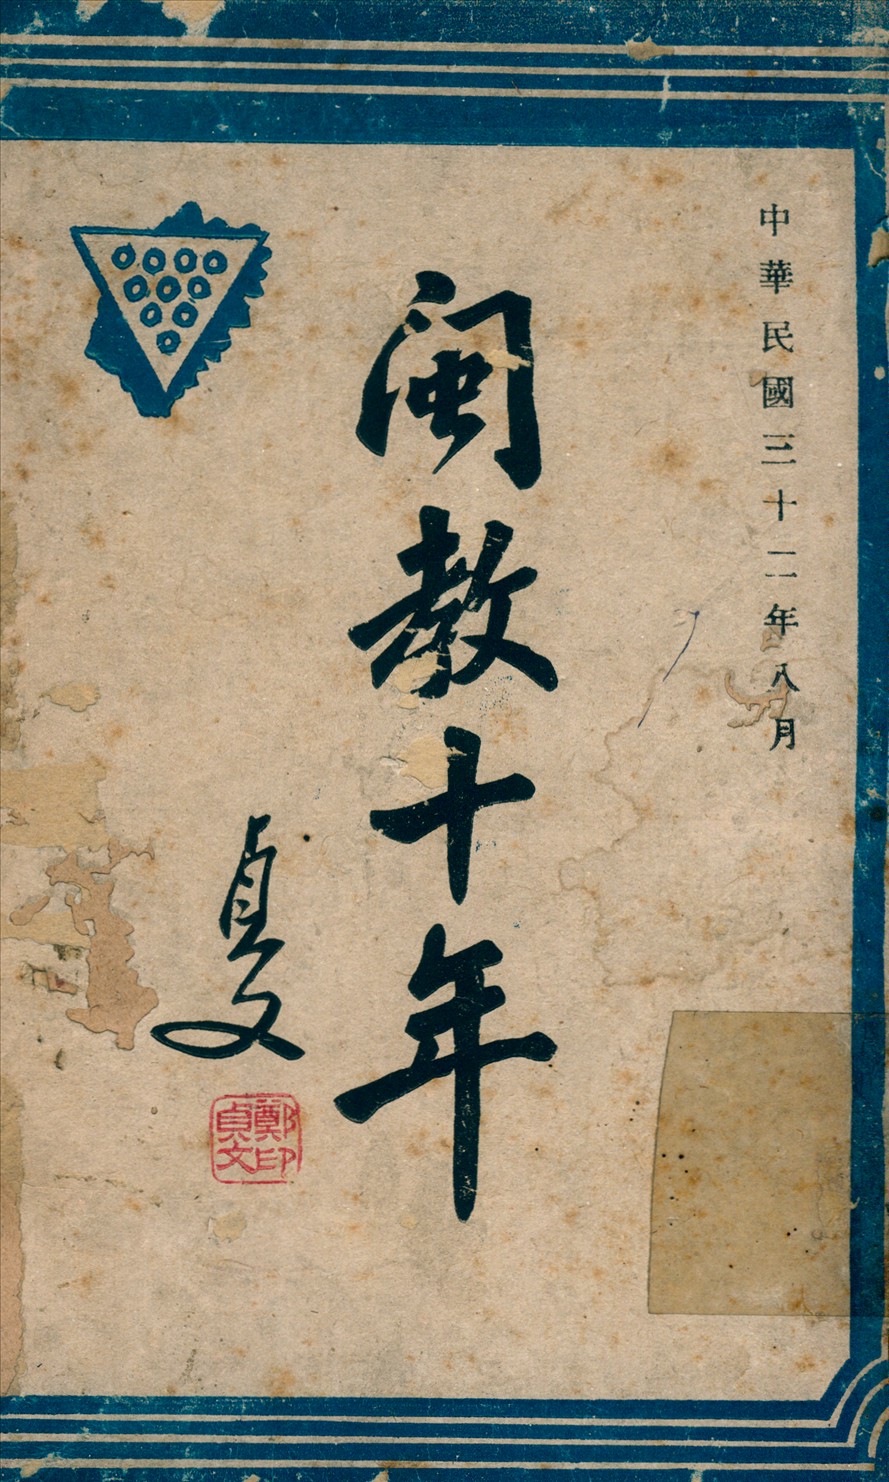 中華民國三十二年八月
閩教十年
貞文
鄭印
貞文